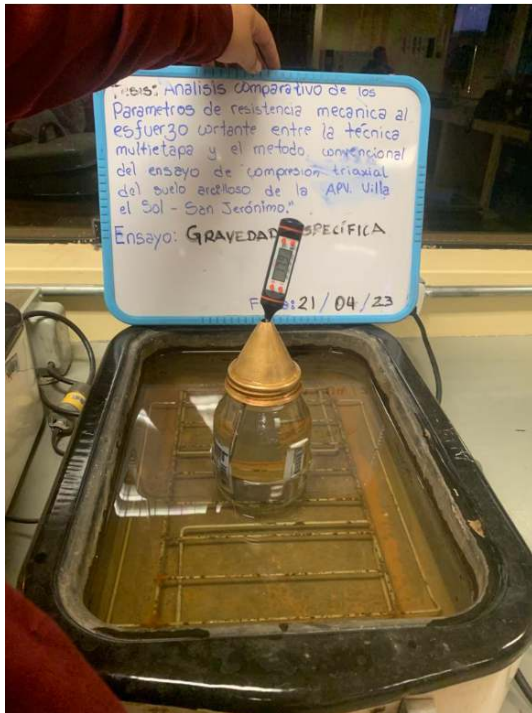 Tesis: "Analisis comparativo de los
Parametros de resistencia mecanica al
esfuerzo cortante entre la técnica
multietapa y el metodo convencional
del ensayo de compresion triaxial
del suelo arcilloso de la APV. Villa
el Sol - San Jerónimo."
Ensayo: GRAVEDAD ESPECÍFICA
21/04/23